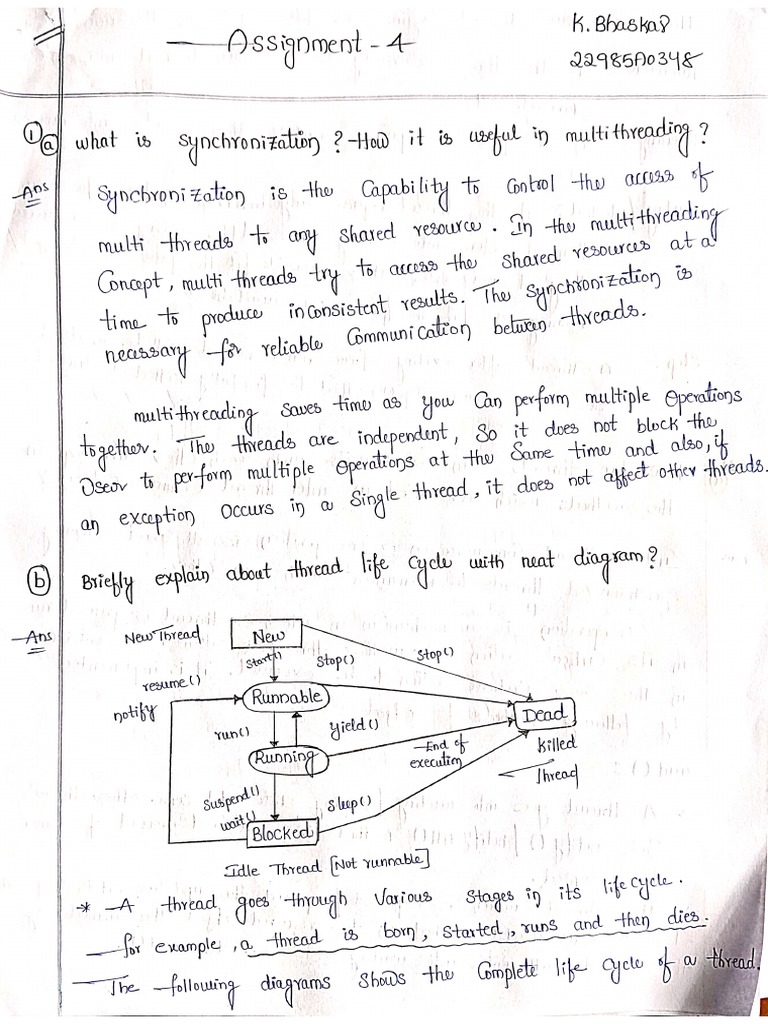 Assignment - 4
K. Bhaskar
22985A0348
1 a what is synchronization? How it is useful in multithreading?
Ans
Synchronization is the Capability to Control the access of
multi threads to any shared resource. In the multithreading
Concept, multi threads try to access the shared resources at a
time to produce inconsistent results. The synchronization is
necessary for reliable Communication between threads.
multithreading saves time as you Can perform multiple Operations
together. The threads are independent, So it does not block the
User to perform multiple Operations at the Same time and also, if
an exception Occurs in a Single thread, it does not affect other threads.
b Briefly explain about thread life Cycle with neat diagram?
Ans
New Thread
New
Start()
Stop()
Stop()
resume()
notify
Runnable
Dead
run()
yield()
Killed
Thread
Running
End of
execution
Suspend()
wait()
Sleep()
Blocked
Idle Thread [Not runnable]
* A thread goes through Various Stages in its life cycle.
for example, a thread is born, started, runs and then dies.
The following diagrams shows the Complete life cycle of a thread.